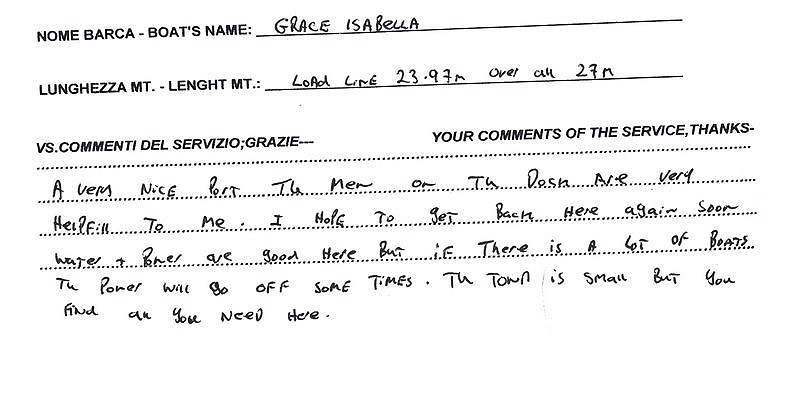 NOME BARCA - BOAT'S NAME: GRACE ISABELLA
LUNGHEZZA MT. - LENGHT MT.: LOAd LINE 23.97m Over all 27m
VS.COMMENTI DEL SERVIZIO;GRAZIE--- YOUR COMMENTS OF THE SERVICE,THANKS-
A very Nice Port The Men on The Dock Are very
HelpFill To Me. I Hope To get Back Here again Soon
water + Power are good Here But iF There is A lot OF BOATS
The Power will go OFF SOME TiMES. The TOWN is SMall BuT you
Find all you NEED Here.